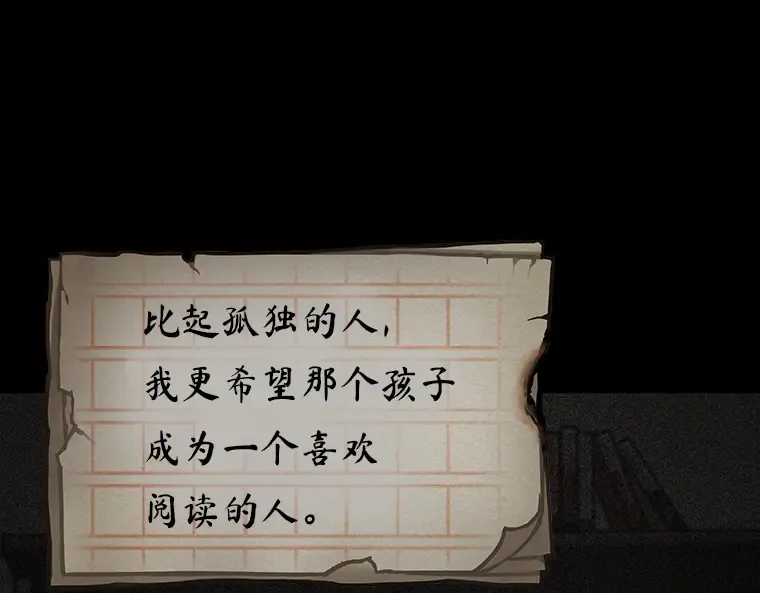 比起孤独的人，
我更希望那个孩子
成为一个喜欢
阅读的人。